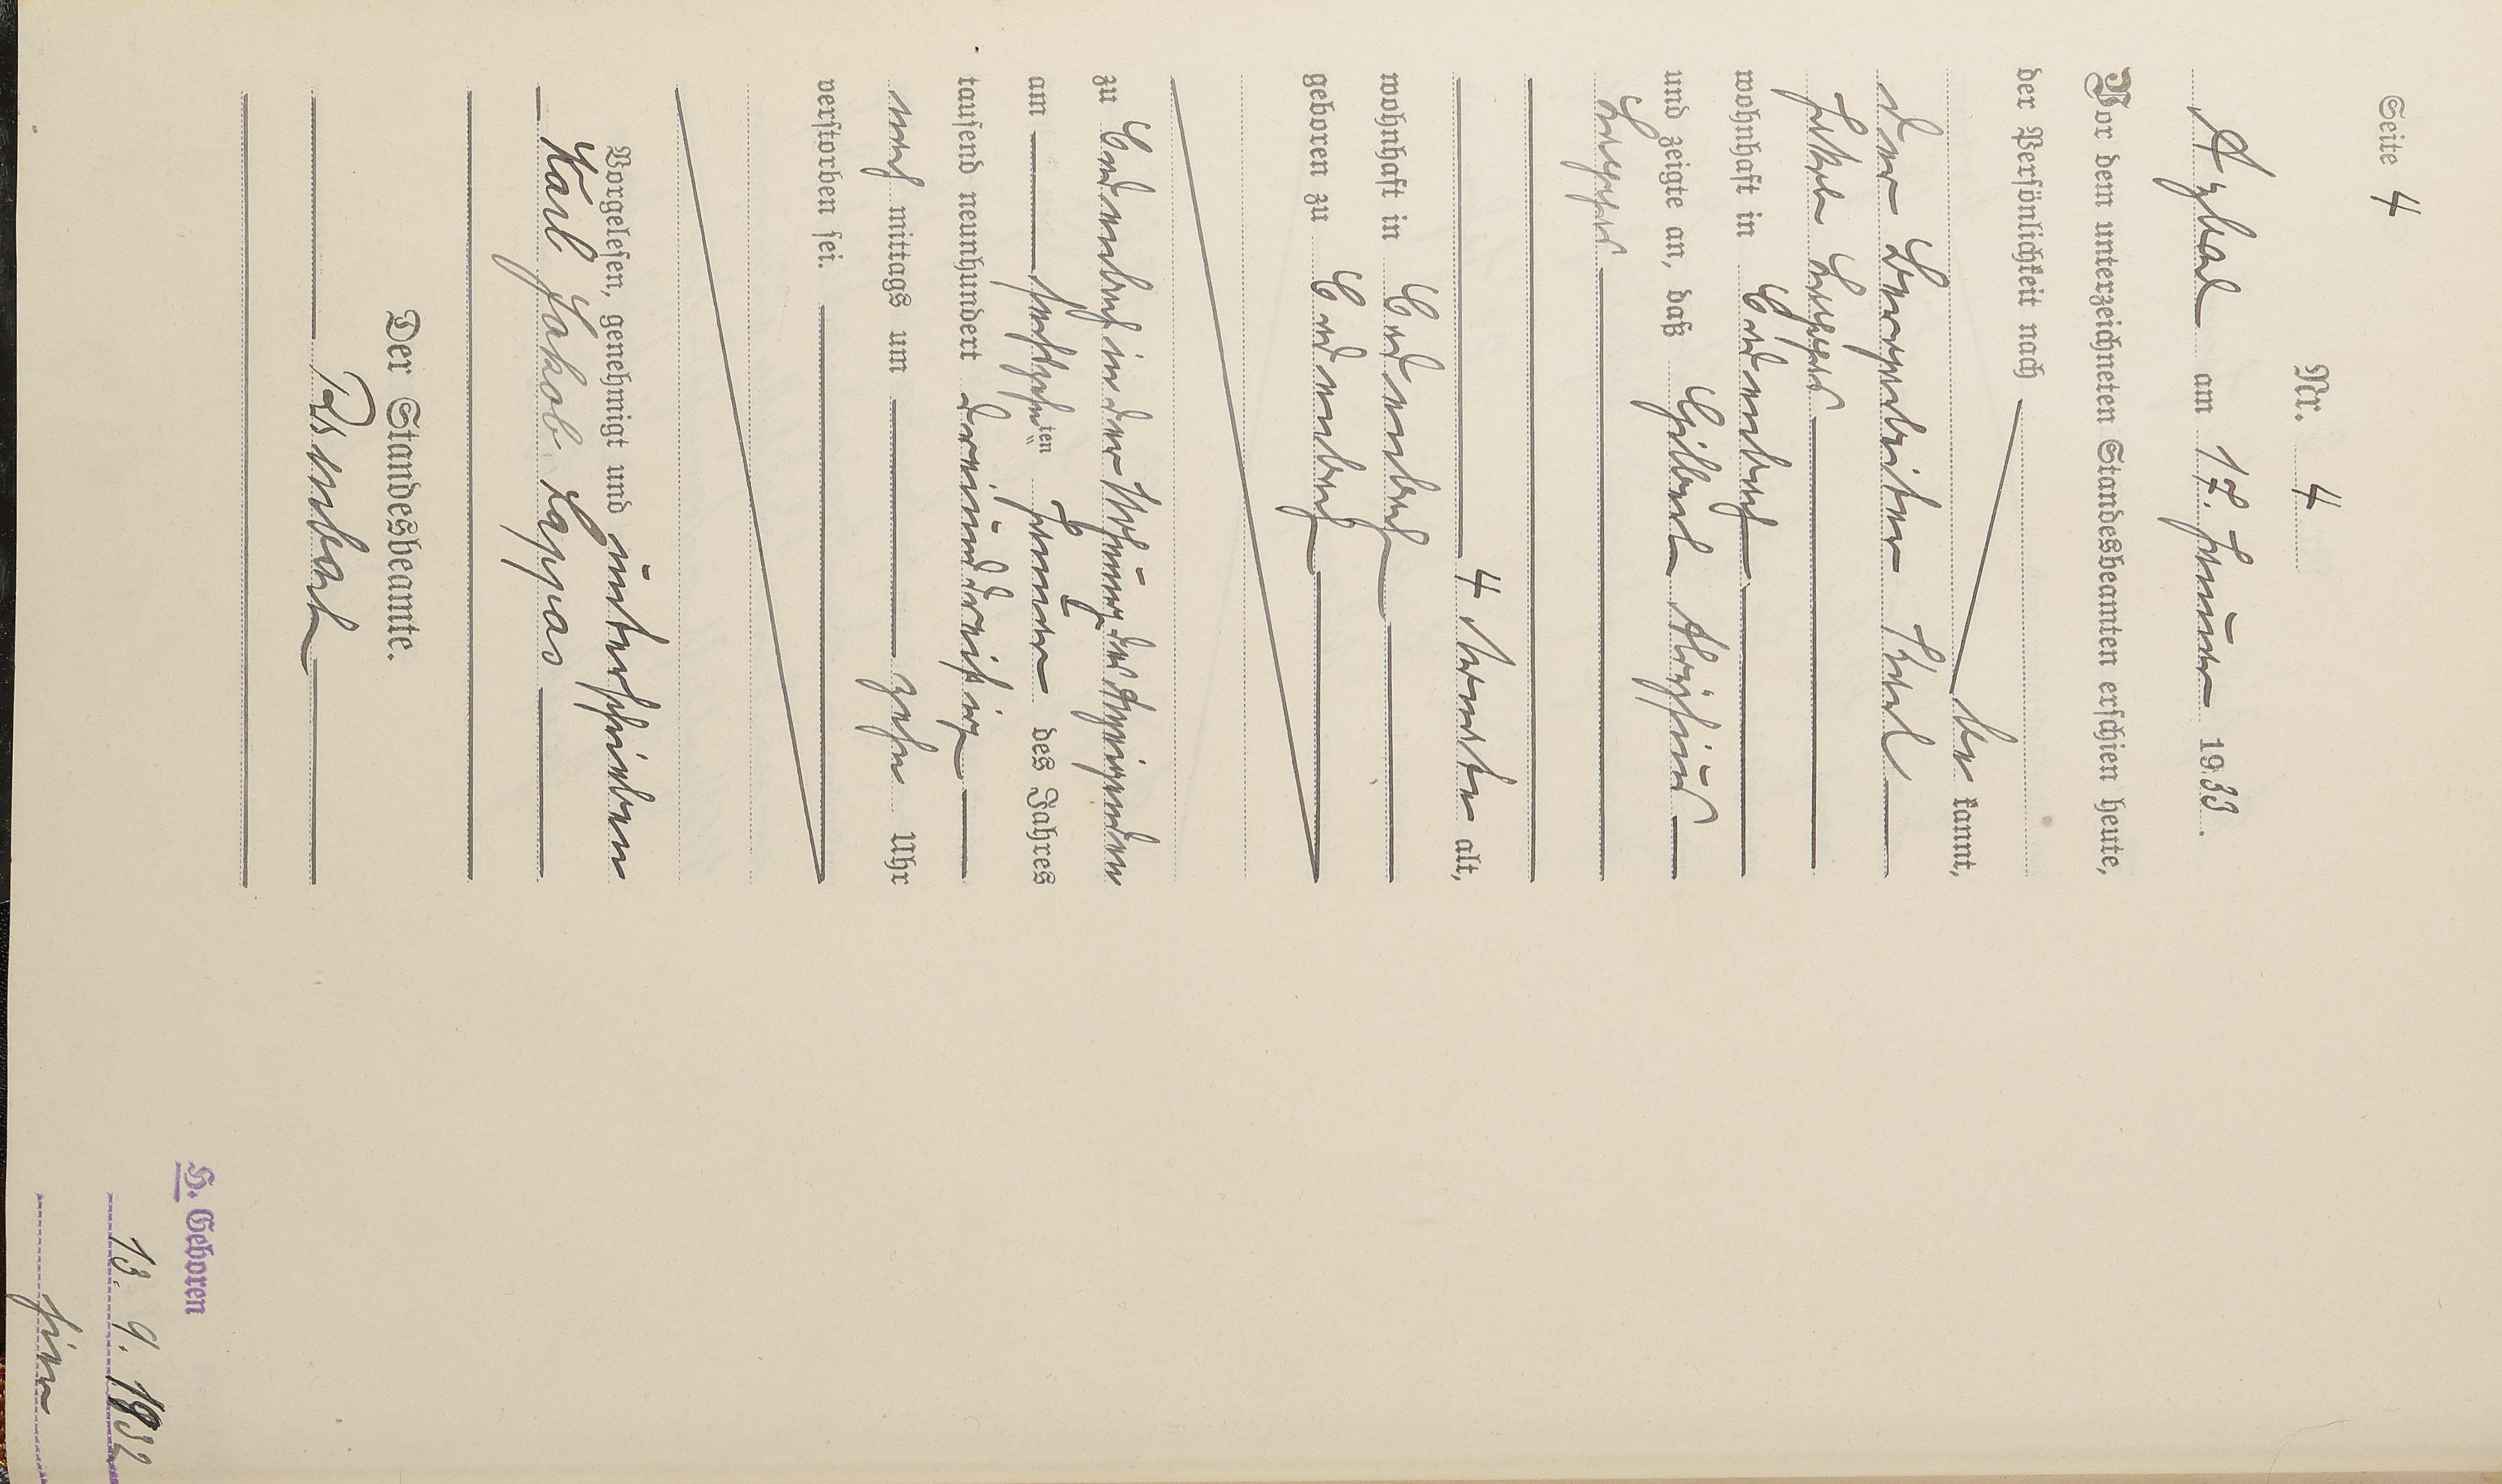 Seite 4
Nr. 4
Asslar am 17. Januar 1933.
Vor dem unterzeichneten Standesbeamten erschien heute,
der Persönlichkeit nach
be kannt,
der Bergarbeiter Karl
Jakob Lappas
wohnhaft in
und zeigte an, daß
Lappas
4 Monate alt,
wohnhaft in
geboren zu
zu in der Wohnung des Anzeigenden
am sechzehnten Januar des Jahres
tausend neunhundert dreiunddreißig
nach mittags um zehn Uhr
verstorben sei.
Vorgelesen, genehmigt und unterschrieben
Karl Jakob Lappas
Der Standesbeamte.
H. Geboren
13. 9. 1932
hier